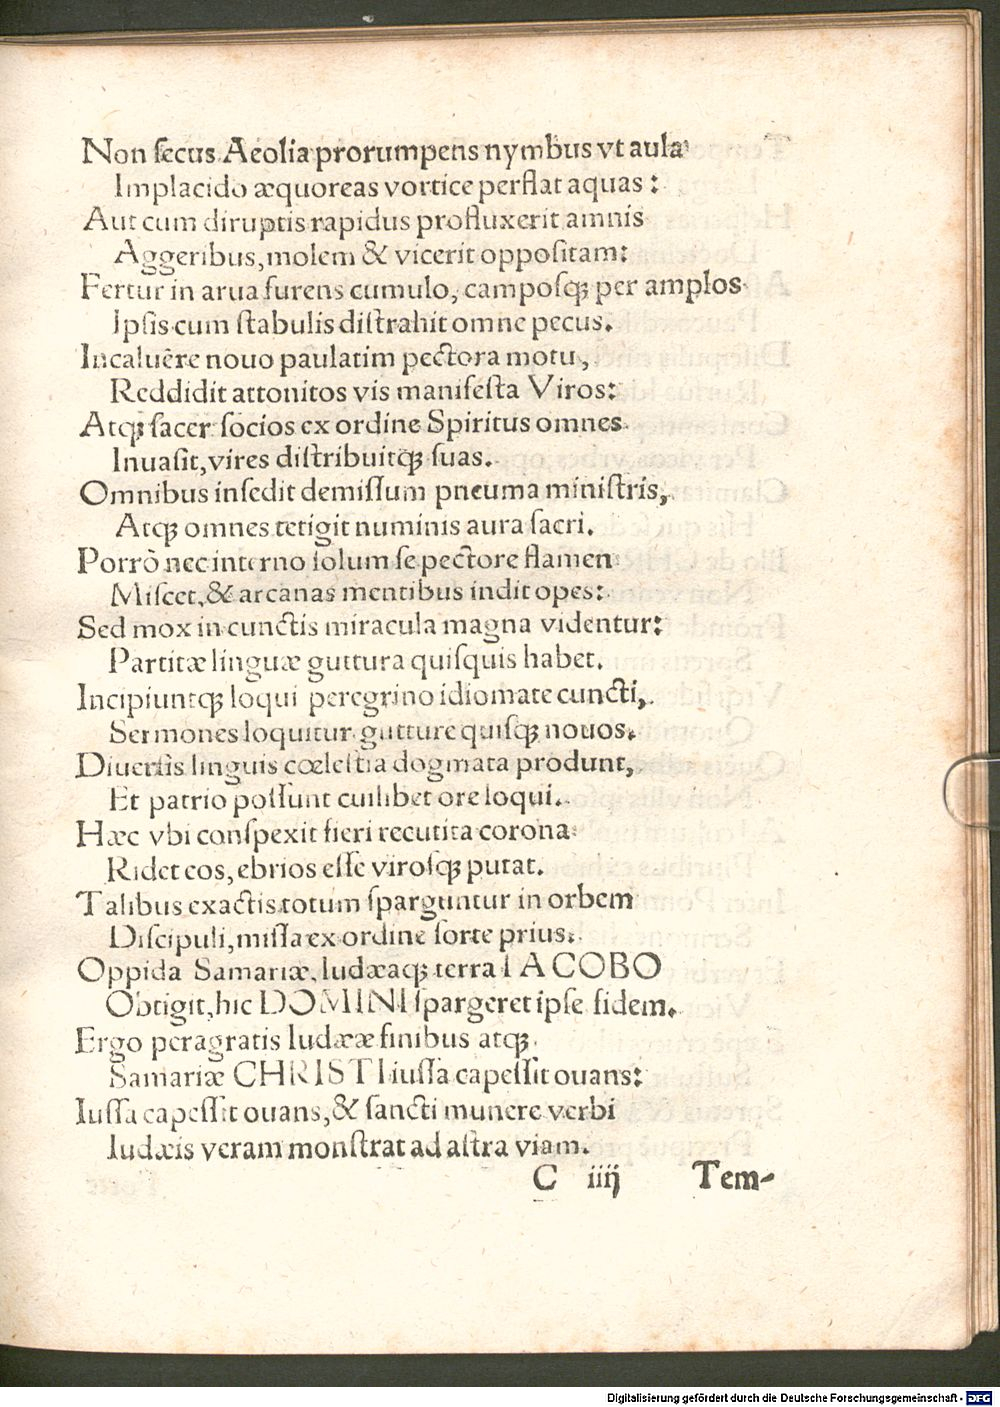 Non ſecus Aeolia prorumpens nymbus vt aula
Implacido æquoreas vortice perflat aquas:
Aut cum diruptis rapidus profluxerit amnis
Aggeribus, molem & vicerit oppoſitam:
Fertur in arua furens cumulo, campoſqꝫ per amplos
Ipſis cum ſtabulis diſtrahit omne pecus.
Incaluêre nouo paulatim pectora motu,
Reddidit attonitos vis manifeſta Viros:
Atqꝫ ſacer ſocios ex ordine Spiritus omnes
Inuaſit, vires diſtribuitqꝫ ſuas.
Omnibus inſedit demiſſum pneuma miniſtris,
Atqꝫ omnes tetigit numinis aura ſacri.
Porrò nec interno ſolum ſe pectore flamen
Miſcet, & arcanas mentibus indit opes:
Sed mox in cunctis miracula magna videntur:
Partitæ linguæ guttura quiſquis habet.
Incipiuntqꝫ loqui peregrino idiomate cuncti,
Sermones loquitur gutture quiſqꝫ nouos.
Diuerſis linguis cœleſtia dogmata produnt,
Et patrio poſſunt cuilibet ore loqui.
Hæc vbi conſpexit fieri recutita corona
Ridet eos, ebrios eſſe viroſqꝫ putat.
Talibus exactis totum ſparguntur in orbem
Diſcipuli, miſſa ex ordine ſorte prius.
Oppida Samariæ, Iudæaqꝫ terra IACOBO
Obtigit, hic DOMINI ſpargeret ipſe fidem.
Ergo peragratis Iudææ finibus atqꝫ
Samariæ CHRISTI iuſſa capeſſit ouans:
Iuſſa capeſſit ouans, & ſancti munere verbi
Iudæis veram monſtrat ad aſtra viam.
C iiij Tem-
Digitalisierung gefördert durch die Deutsche Forschungsgemeinschaft - DFG